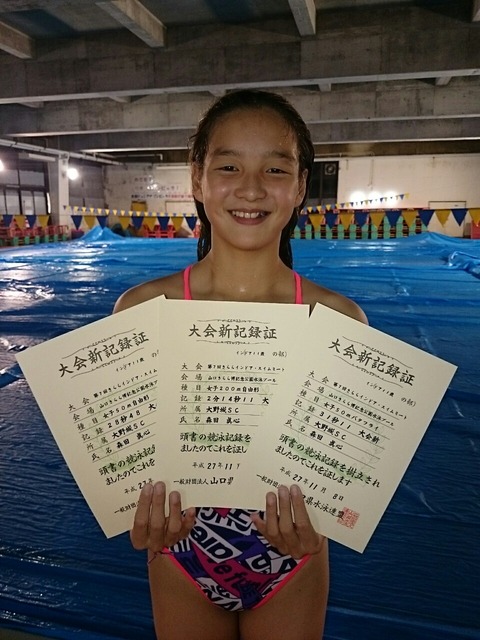 大会新記録証
大会 第7回きららインドア・スイムミート
会場 山口きらら博記念公園水泳プール
種目 女子50m自由形
記録 28秒48 大
所属 大野城SC
氏名 森田 眞心
頭書の競泳記録を
ましたのでこれを
平成 27年
一般財団法
大会新記録証
大会 第7回きららインドア・スイムミート
会場 山口きらら博記念公園水泳プール
種目 女子200m自由形
記録 2分14秒11 大
所属 大野城SC
氏名 森田 眞心
頭書の競泳記録を
ましたのでこれを証し
平成 27年11月
一般財団法人 山口県
大会新記録証
の部
大会 第7回きららインドア・スイムミート
会場 山口きらら博記念公園水泳プール
種目 女子50mバタフライ
記録 31秒11 大会新
所属 大野城SC
氏名 森田 眞心
頭書の競泳記録を樹立され
ましたのでこれを証します
27年11月 8日
県水泳連盟